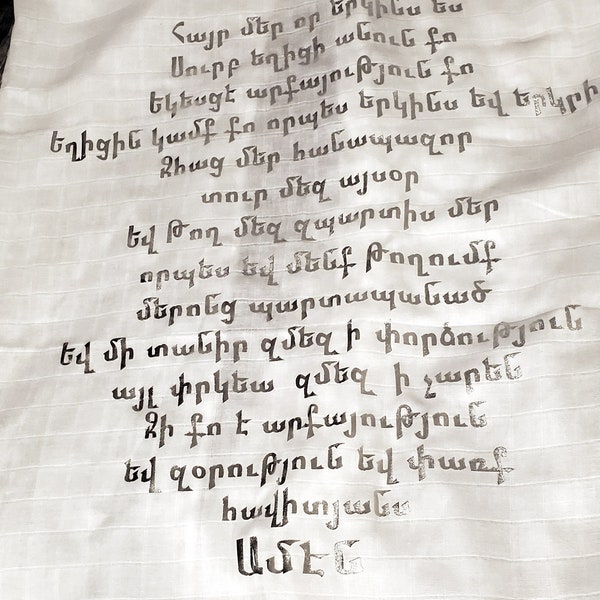 Հայր մեր որ երկինս ես
Սուրբ եղիցի անուն քո
Եկեսցէ արքայություն քո
Եղիցին կամք քո որպես երկինս եվ երկրի
Զհաց մեր հանապազոր
տուր մեզ այսօր
եվ Թող մեզ զպարտիս մեր
որպես եվ մենք թողումք
մերոնց պարտապանած
եվ մի տանիր զմեզ ի փորձություն
այլ փրկեա զմեզ ի չարեն
Զի քո է արքայություն
եվ զօրություն եվ փառք
հավիտյանս
Ամէն